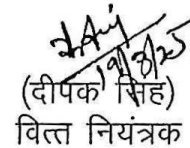 19/3/25
(दीपक सिंह)
वित्त नियंत्रक